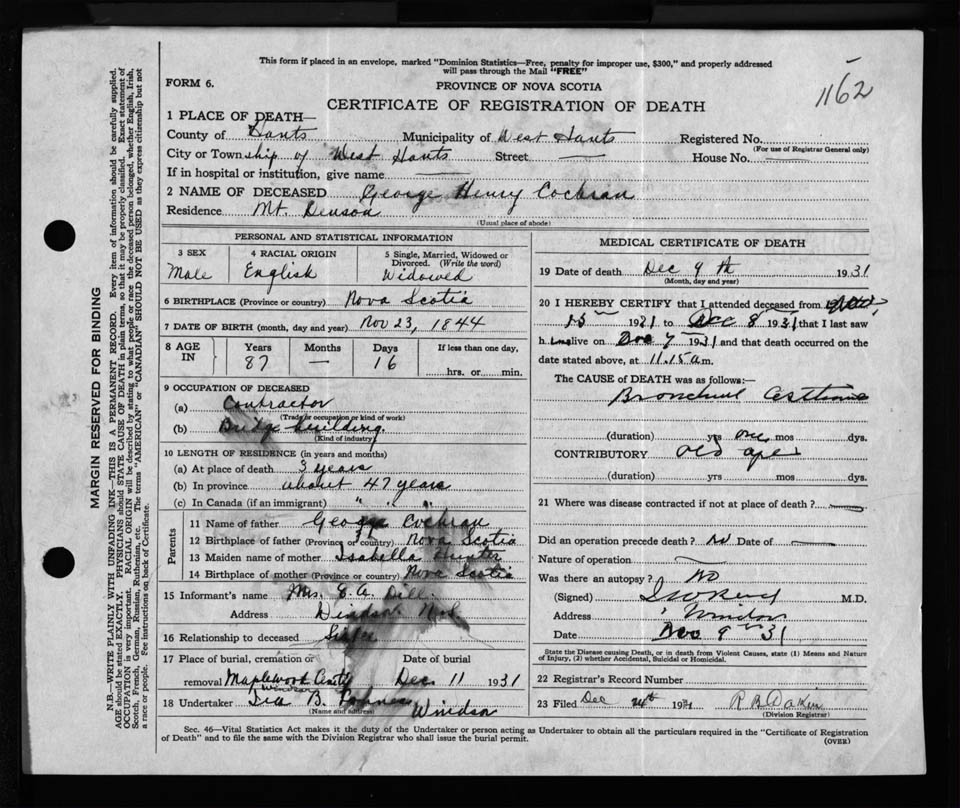 This form if placed in an envelope, marked "Dominion Statistics—Free, penalty for improper use, $300," and properly addressed
will pass through the Mail "FREE"
1162
FORM 6.
PROVINCE OF NOVA SCOTIA
CERTIFICATE OF REGISTRATION OF DEATH
1 PLACE OF DEATH—
County of Hants Municipality of West Hants Registered No.
(For use of Registrar General only)
City or Township of West Hants Street — House No. —
If in hospital or institution, give name —
2 NAME OF DECEASED George Henry Cochran
Residence Mt. Denson
(Usual place of abode)
PERSONAL AND STATISTICAL INFORMATION
3 SEX 4 RACIAL ORIGIN 5 Single, Married, Widowed or
Divorced. (Write the word)
Male English Widowed
6 BIRTHPLACE (Province or country) Nova Scotia
7 DATE OF BIRTH (month, day and year) Nov 23, 1844
8 AGE IN Years Months Days If less than one day,
87 — 16 hrs. or min.
9 OCCUPATION OF DECEASED
(a) Contractor
(Trade or occupation or kind of work)
(b) Bridge building
(Kind of industry)
10 LENGTH OF RESIDENCE (in years and months)
(a) At place of death 3 years
(b) In province about 47 years
(c) In Canada (if an immigrant) " "
Parents
11 Name of father George Cochran
12 Birthplace of father (Province or country) Nova Scotia
13 Maiden name of mother Isabella Hunter
14 Birthplace of mother (Province or country) Nova Scotia
15 Informant's name Mrs. E. A. Dill
Address Windsor N.S.
16 Relationship to deceased Sister
17 Place of burial, cremation or Date of burial
removal Maplewood Cemty Dec. 11 1931
Windsor
18 Undertaker B. Windsor
(Name and address)
MEDICAL CERTIFICATE OF DEATH
19 Date of death Dec 9th 1931
(Month, day and year)
20 I HEREBY CERTIFY that I attended deceased from
15 1931 to Dec 8 1931 that I last saw
h im alive on Dec 7 1931 and that death occurred on the
date stated above, at 11.15 a m.
The CAUSE OF DEATH was as follows:—
Bronchial Asthma
(duration) yrs one mos dys.
CONTRIBUTORY old age
(duration) yrs mos dys.
21 Where was disease contracted if not at place of death? —
Did an operation precede death? No Date of —
Nature of operation —
Was there an autopsy? No
(Signed) M.D.
Address Windsor
Date Dec 9th 31
State the Disease causing Death, or in death from Violent Causes, state (1) Means and Nature
of Injury, (2) whether Accidental, Suicidal or Homicidal.
22 Registrar's Record Number
23 Filed Dec 1931 R B Dakin
(Division Registrar)
Sec. 46—Vital Statistics Act makes it the duty of the Undertaker or person acting as Undertaker to obtain all the particulars required in the "Certificate of Registration
of Death" and to file the same with the Division Registrar who shall issue the burial permit.
(OVER)
MARGIN RESERVED FOR BINDING
N.B.—WRITE PLAINLY WITH UNFADING INK—THIS IS A PERMANENT RECORD. Every item of information should be carefully supplied.
AGE should be stated EXACTLY. PHYSICIANS should STATE CAUSE OF DEATH in plain terms, so that it may be properly classified. Exact statement of
OCCUPATION is very important. RACIAL ORIGIN will be described by stating to what people or race the deceased person belonged, whether English, Irish,
Scotch, French, German, Russian, Ruthenian, etc. The terms "AMERICAN" or "CANADIAN" SHOULD NOT BE USED as they express citizenship but not
a race or people. See instructions on back of Certificate.